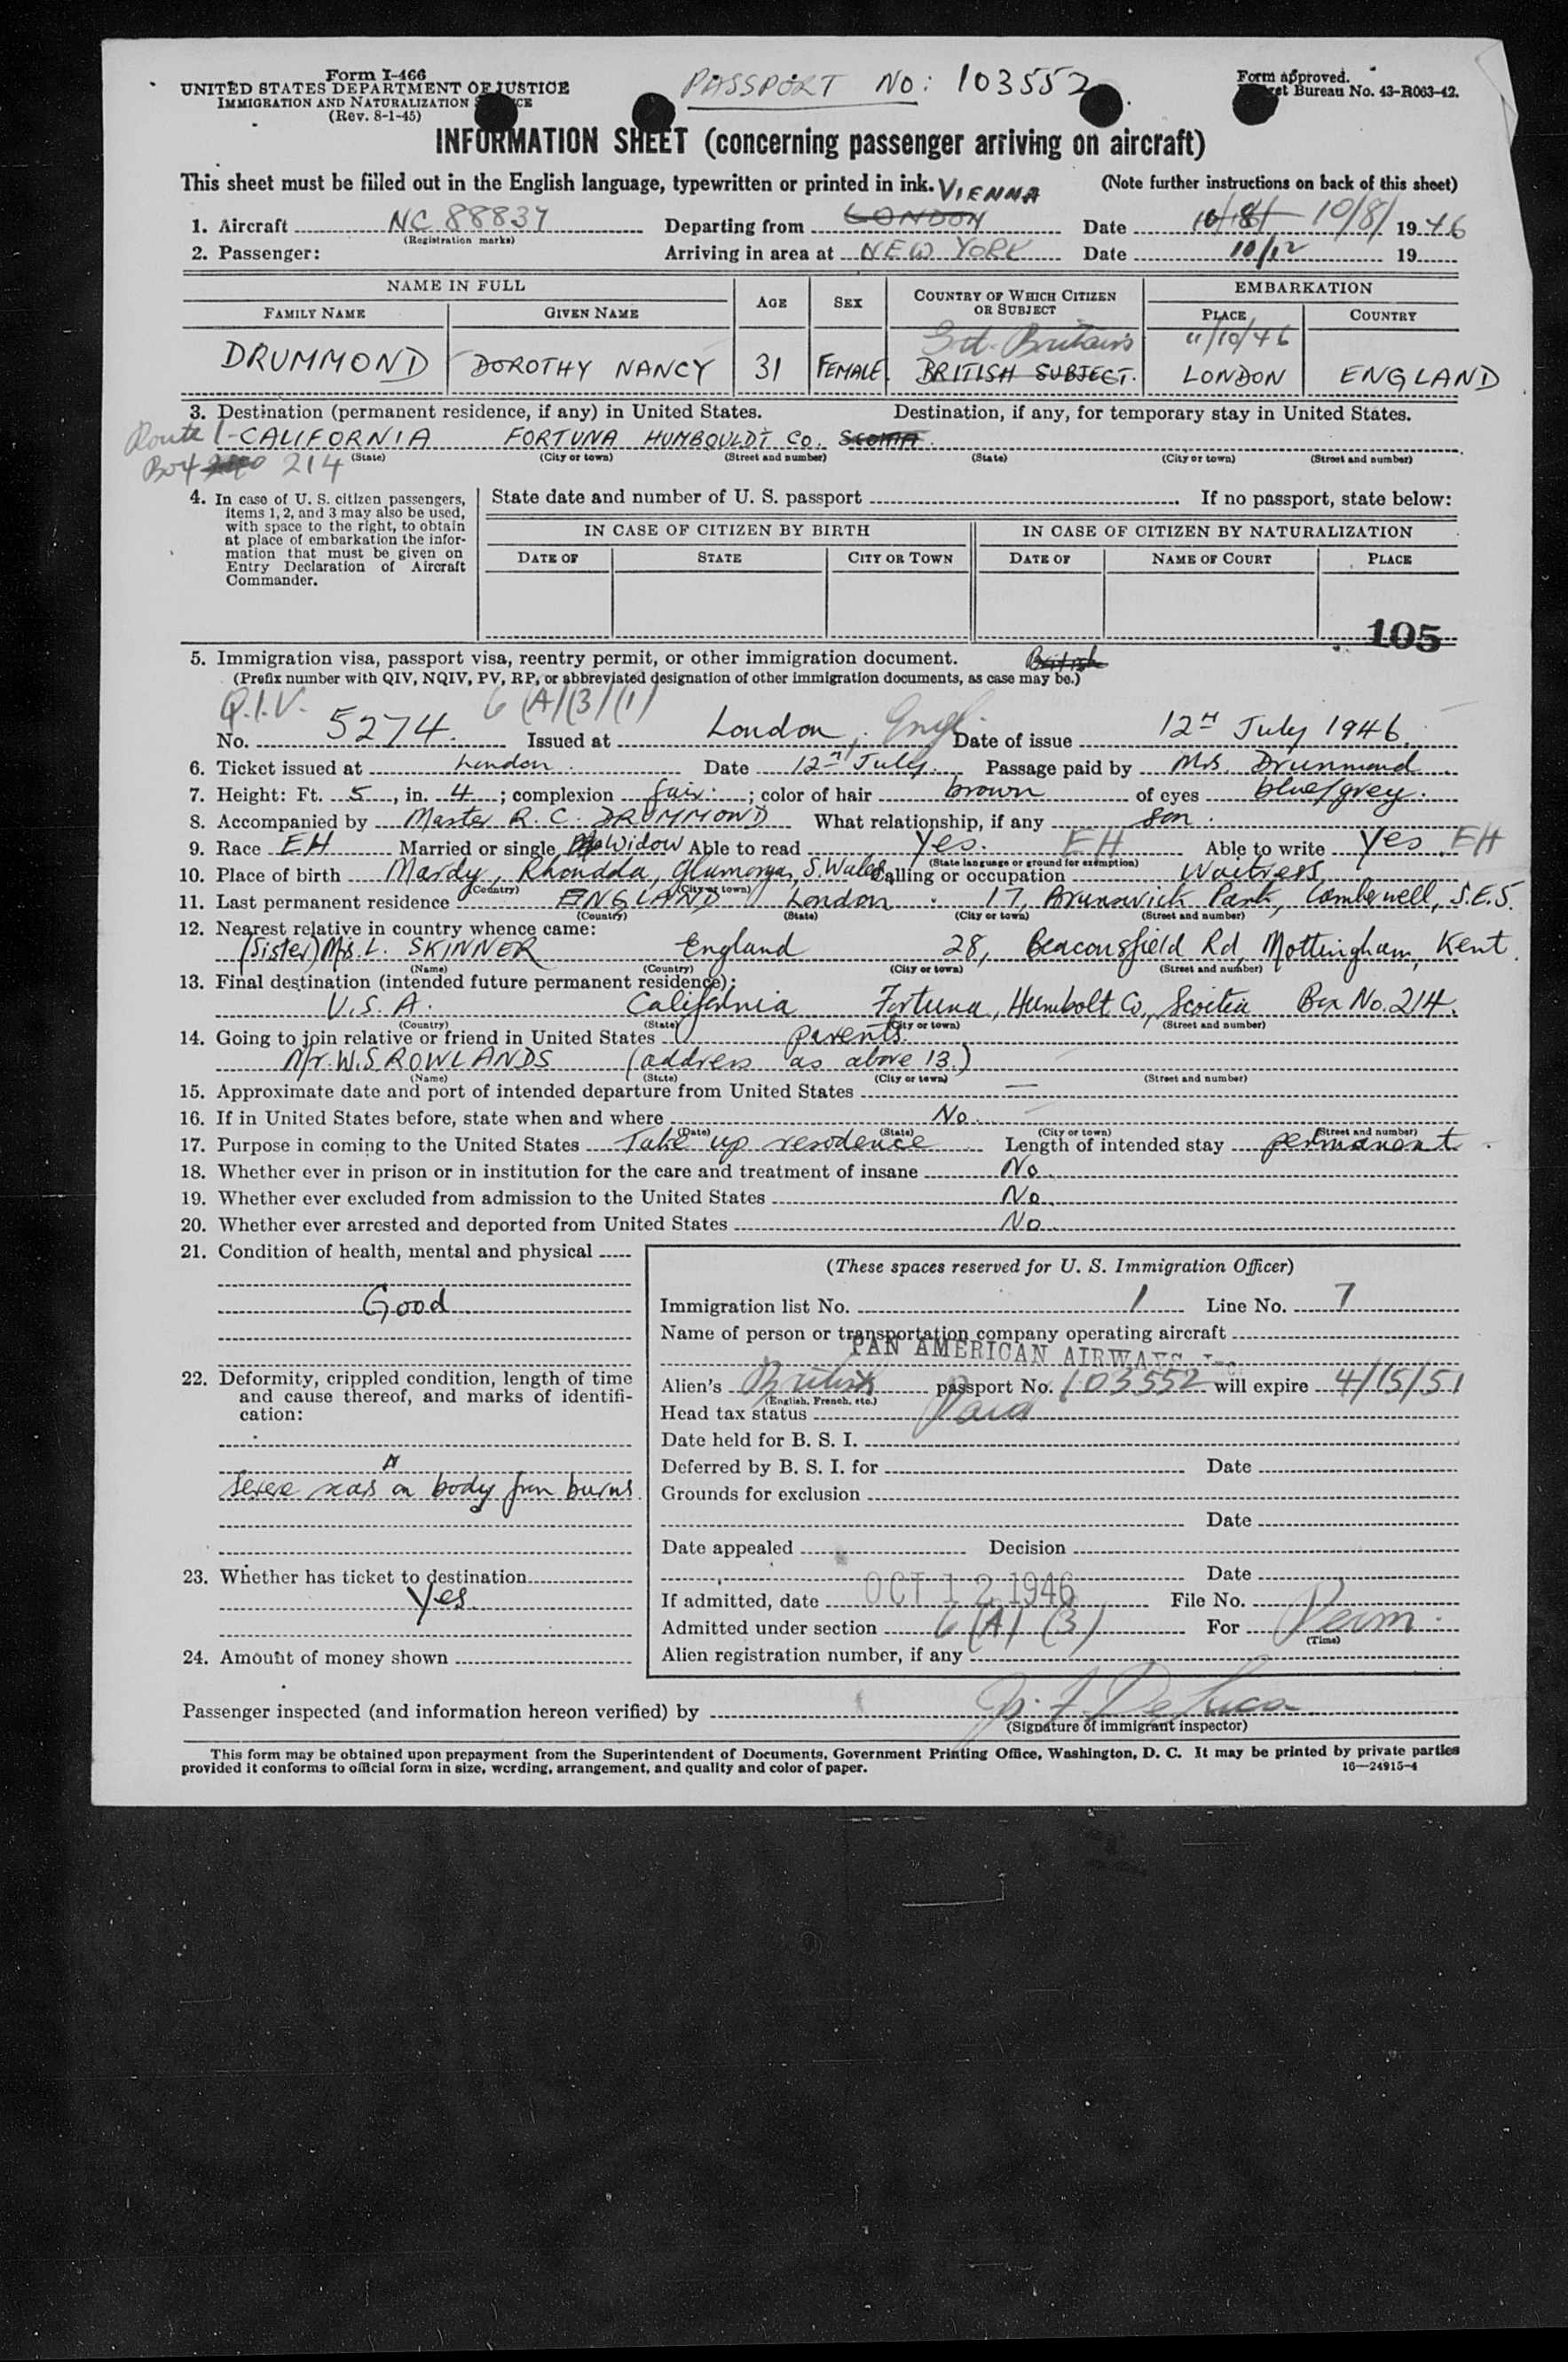 Form I-466
UNITED STATES DEPARTMENT OF JUSTICE
IMMIGRATION AND NATURALIZATION
(Rev. 8-1-45)
PASSPORT NO: 103552
Form approved.
Bureau No. 43-R063-42.
INFORMATION SHEET (concerning passenger arriving on aircraft)
This sheet must be filled out in the English language, typewritten or printed in ink. (Note further instructions on back of this sheet)
VIENNA
1. Aircraft NC 88837 Departing from LONDON Date 10/8/ 10/8/ 1946
(Registration marks)
2. Passenger: Arriving in area at NEW YORK Date 10/12 19
NAME IN FULL AGE SEX COUNTRY OF WHICH CITIZEN OR SUBJECT EMBARKATION
FAMILY NAME GIVEN NAME PLACE COUNTRY
Gt. Britain 11/10/46
DRUMMOND DOROTHY NANCY 31 FEMALE BRITISH SUBJECT. LONDON ENGLAND
3. Destination (permanent residence, if any) in United States. Destination, if any, for temporary stay in United States.
Route 1 - CALIFORNIA FORTUNA HUMBOULDT Co. SCOTIA
Box 214 (State) (City or town) (Street and number) (State) (City or town) (Street and number)
4. In case of U. S. citizen passengers, items 1, 2, and 3 may also be used, with space to the right, to obtain at place of embarkation the information that must be given on Entry Declaration of Aircraft Commander.
State date and number of U. S. passport . If no passport, state below:
IN CASE OF CITIZEN BY BIRTH IN CASE OF CITIZEN BY NATURALIZATION
DATE OF STATE CITY OR TOWN DATE OF NAME OF COURT PLACE
105
5. Immigration visa, passport visa, reentry permit, or other immigration document. British
(Prefix number with QIV, NQIV, PV, RP, or abbreviated designation of other immigration documents, as case may be.)
Q.I.V. 6 (A)(3)(1)
No. 5274. Issued at London, Engl. Date of issue 12th July 1946.
6. Ticket issued at London. Date 12th July. Passage paid by Mrs. Drummond
7. Height: Ft. 5, in. 4; complexion fair; color of hair brown of eyes blue/grey.
8. Accompanied by Master R. C. DRUMMOND What relationship, if any Son.
9. Race EH Married or single Widow Able to read Yes. EH Able to write Yes EH
(State language or ground for exemption)
10. Place of birth Mardy, Rhondda, Glamorgan, S. Wales Calling or occupation Waitress
(Country) (City or town)
11. Last permanent residence ENGLAND London 17, Brunswick Park, Camberwell, S.E.5.
(Country) (State) (City or town) (Street and number)
12. Nearest relative in country whence came:
(Sister) Mrs. L. SKINNER England 28, Beaconsfield Rd, Mottingham, Kent.
(Name) (Country) (City or town) (Street and number)
13. Final destination (intended future permanent residence):
U.S.A. California Fortuna, Humbolt Co, Scotia Box No. 214.
(Country) (State) (City or town) (Street and number)
14. Going to join relative or friend in United States parents.
Mr. W.S ROWLANDS (address as above 13.)
(Name) (State) (City or town) (Street and number)
15. Approximate date and port of intended departure from United States —
16. If in United States before, state when and where No.
(Date) (State) (City or town) (Street and number)
17. Purpose in coming to the United States Take up residence Length of intended stay permanent.
18. Whether ever in prison or in institution for the care and treatment of insane No.
19. Whether ever excluded from admission to the United States No.
20. Whether ever arrested and deported from United States No.
21. Condition of health, mental and physical
Good
22. Deformity, crippled condition, length of time and cause thereof, and marks of identification:
Severe scars on body from burns
23. Whether has ticket to destination
Yes.
24. Amount of money shown
(These spaces reserved for U. S. Immigration Officer)
Immigration list No. 1 Line No. 7
Name of person or transportation company operating aircraft
PAN AMERICAN AIRWAYS
Alien's British passport No. 103552 will expire 4/15/51
(English, French, etc.)
Head tax status Paid
Date held for B. S. I.
Deferred by B. S. I. for Date
Grounds for exclusion
Date
Date appealed Decision
Date
If admitted, date OCT 12 1946 File No.
Admitted under section 6 (A) (3) For Perm.
(Time)
Alien registration number, if any
Passenger inspected (and information hereon verified) by
(Signature of immigrant inspector)
This form may be obtained upon prepayment from the Superintendent of Documents, Government Printing Office, Washington, D. C. It may be printed by private parties
provided it conforms to official form in size, wording, arrangement, and quality and color of paper. 16—24915-4